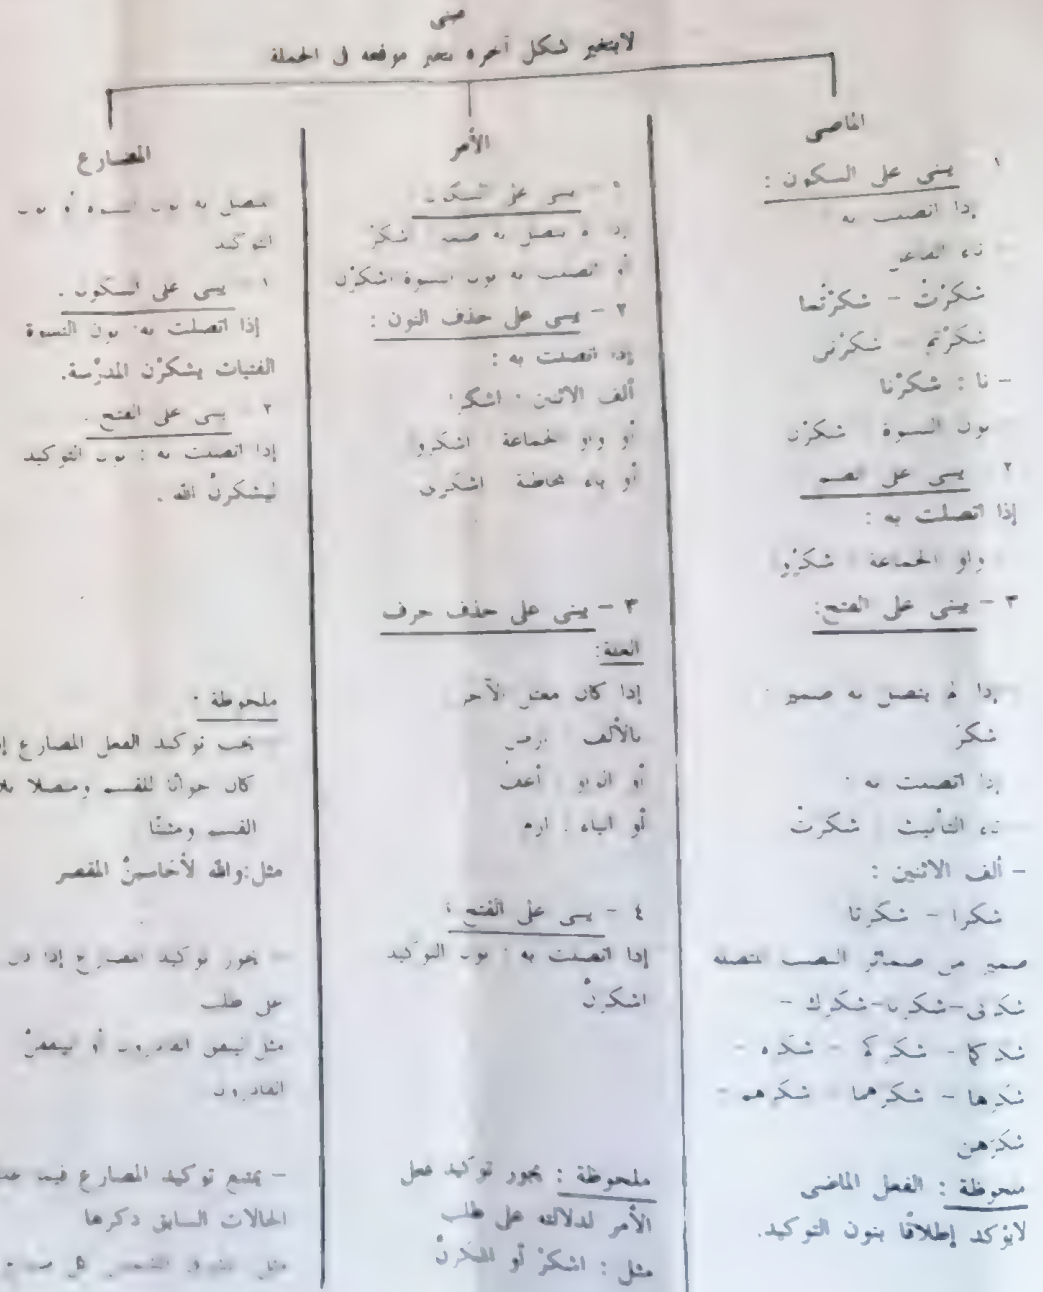 مبنى
لايتغير شكل آخره بتغير موقعه فى الجملة
الماضى
١ يبنى على السكون :
إذا اتصلت به :
تاء الفاعل
شكرْتُ - شكرْتُما
شكَرْتم - شكرْتن
- نا : شكرْنا
نون النسوة شكرْن
٢ يبنى على الضم
إذا اتصلت به :
واو الجماعة شكرُوا
٣ - يبنى على الفتح:
إذا لم يتصل به ضمير
شكرَ
إذا اتصلت به
تاء التأنيث شكرتْ
- ألف الاثنين :
شكرا - شكرتا
ضمير من ضمائر النصب المتصلة
شكرنى - شكرنا - شكرك -
شكركما - شكركم - شكره -
شكرها - شكرهما - شكرهم -
شكرهن
ملحوظة : الفعل الماضى
لايؤكد إطلاقًا بنون التوكيد.
الأمر
١ - يبنى على السكون :
إذا لم يتصل به ضمير اشكرْ
أو اتصلت به نون النسوة اشكرْن
٢ - يبنى على حذف النون :
إذا اتصلت به :
ألف الاثنين : اشكرا
أو واو الجماعة اشكرو
أو ياء مخاطبة اشكرى
٣ - يبنى على حذف حرف
العلة:
إذا كان معتل الآخر
بالألف ارض
أو الواو أعف
أو الياء : ارم
٤ - يبنى على الفتح :
إذا اتصلت به : نون التوكيد
اشكرنْ
ملحوظة : يجوز توكيد فعل
الأمر لدلالته على طلب
مثل : اشكرْ أو اشكرنْ
المضارع
متصل به نون النسوة أو نون
التوكيد
١ - يبنى على السكون .
إذا اتصلت به : نون النسوة
الفتيات يشكرْن المدرّسة.
٢ يبنى على الفتح .
إذا اتصلت به : نون التوكيد
ليشكرنْ الله .
ملحوظة :
يجب توكيد الفعل المضارع
كان جوابًا للقسم ومتصلا
القسم ومثبتًا
مثل:والله لأحاسبنْ المقصر
- يجوز توكيد المضارع إذا دل
على طلب
مثل أو
القادرون
- يمتنع توكيد المضارع فيما
الحالات السابق ذكرها
مثل